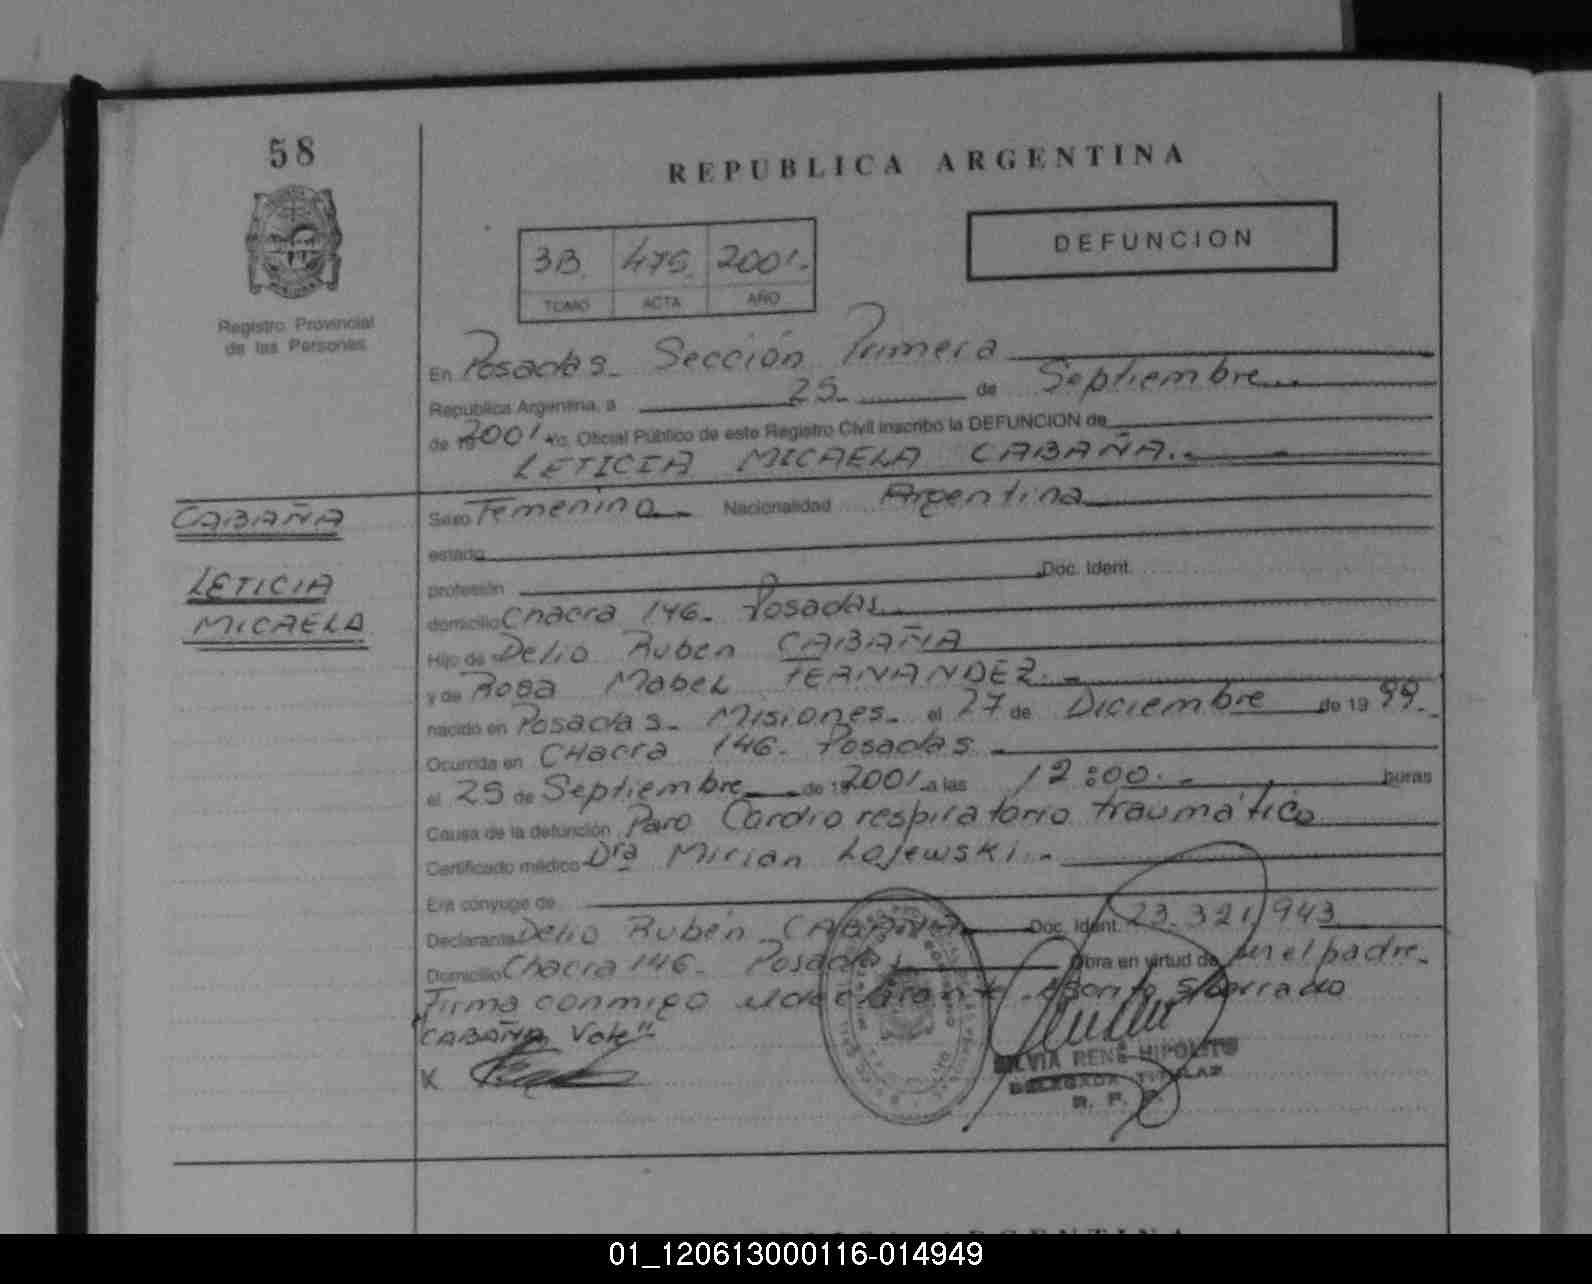 58
REPUBLICA ARGENTINA
DEFUNCION
3B. 475. 2001.
TOMO ACTA AÑO
Registro Provincial
de las Personas
En Posadas - Sección Primera
Republica Argentina, a 25. de Septiembre
de 19 2001. Yo, Oficial Público de este Registro Civil inscribo la DEFUNCION de
LETICIA MICAELA CABAÑA.
CABAÑA
LETICIA
MICAELA
Sexo Femenino Nacionalidad Argentina
estado
profesión Doc. Ident.
domicilio Chacra 146. Posadas
Hijo de Delio Ruben CABAÑA
y de Rosa Mabel FERNANDEZ.
nacido en Posadas - Misiones - el 27 de Diciembre de 19 99.
Ocurrida en Chacra 146. Posadas
el 25 de Septiembre de 19 2001 a las 12:00. horas
Causa de la defunción Paro Cardiorespiratorio traumático
Certificado médico Dra Mirian Lajewski.
Era cónyuge de
Declarante Delio Rubén CABAÑA Doc. Ident. 23.321.943
Domicilio Chacra 146 - Posadas Obra en virtud de ser el padre.
Firma conmigo el declarante.
"CABAÑA Vale"
X
SILVIA RENE HIPOLITO
DELEGADA TITULAR
R. P. P.
ARGENTINA
01_120613000116-014949